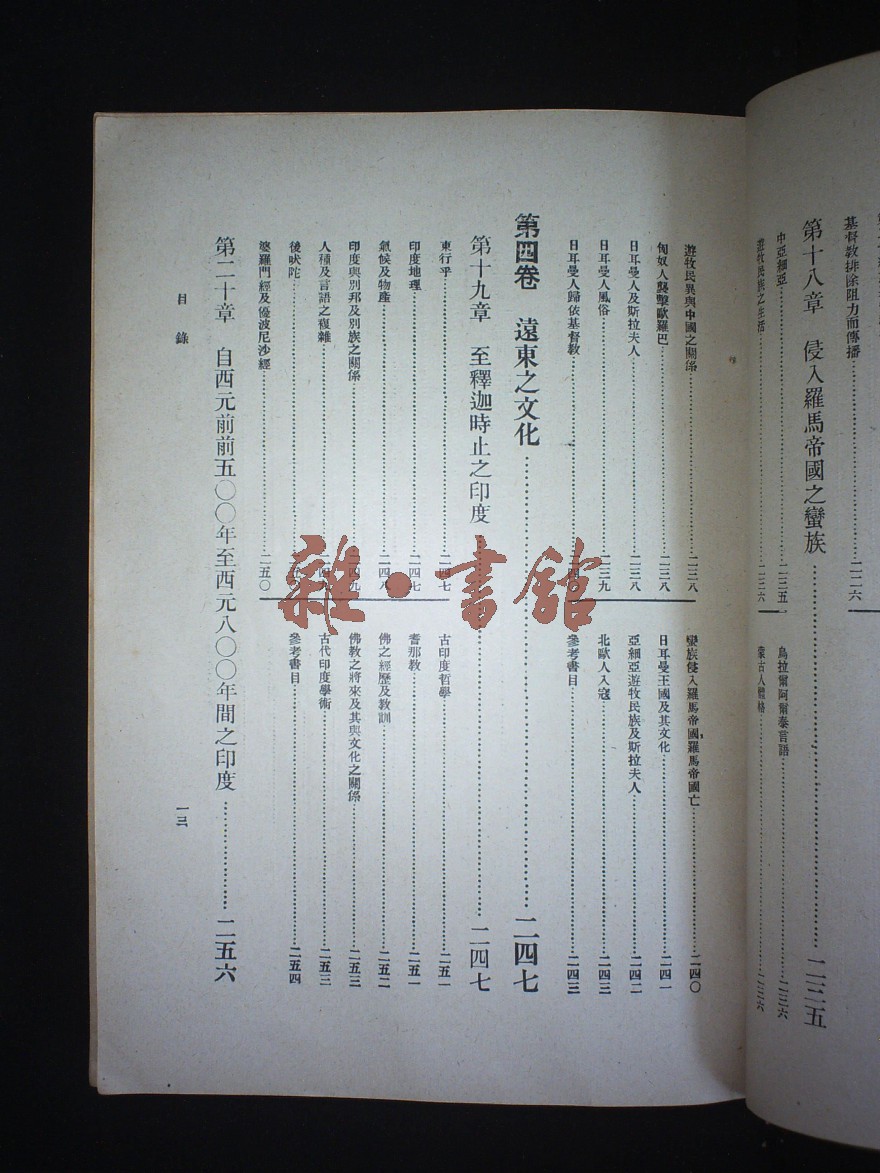 基督教排除阻力而傳播……二二六
第十八章 侵入羅馬帝國之蠻族……二三五
中亞細亞……二三五
遊牧民族之生活……二三六
烏拉爾阿爾泰言語……二三六
蒙古人體格……二三六
遊牧民異與中國之關係……二三八
匈奴人襲擊歐羅巴……二三八
日耳曼人及斯拉夫人……二三八
日耳曼人風俗……二三九
日耳曼人歸依基督教……
蠻族侵入羅馬帝國,羅馬帝國亡……二四〇
日耳曼王國及其文化……二四一
亞細亞遊牧民族及斯拉夫人……二四二
北歐人入寇……二四三
參考書目……二四三
第四卷 遠東之文化……二四七
第十九章 至釋迦時止之印度……二四七
東行乎……二四七
印度地理……二四七
氣候及物產……二四八
印度與別邦及別族之關係……二四九
人種及言語之複雜……
後吠陀……
婆羅門經及優波尼沙經……二五〇
古印度哲學……二五一
耆那教……二五一
佛之經歷及教訓……二五二
佛教之將來及其與文化之關係……二五三
古代印度學術……二五三
參考書目……二五四
第二十章 自西元前前五〇〇年至西元八〇〇年間之印度……二五六
目錄
一三
雜·書館